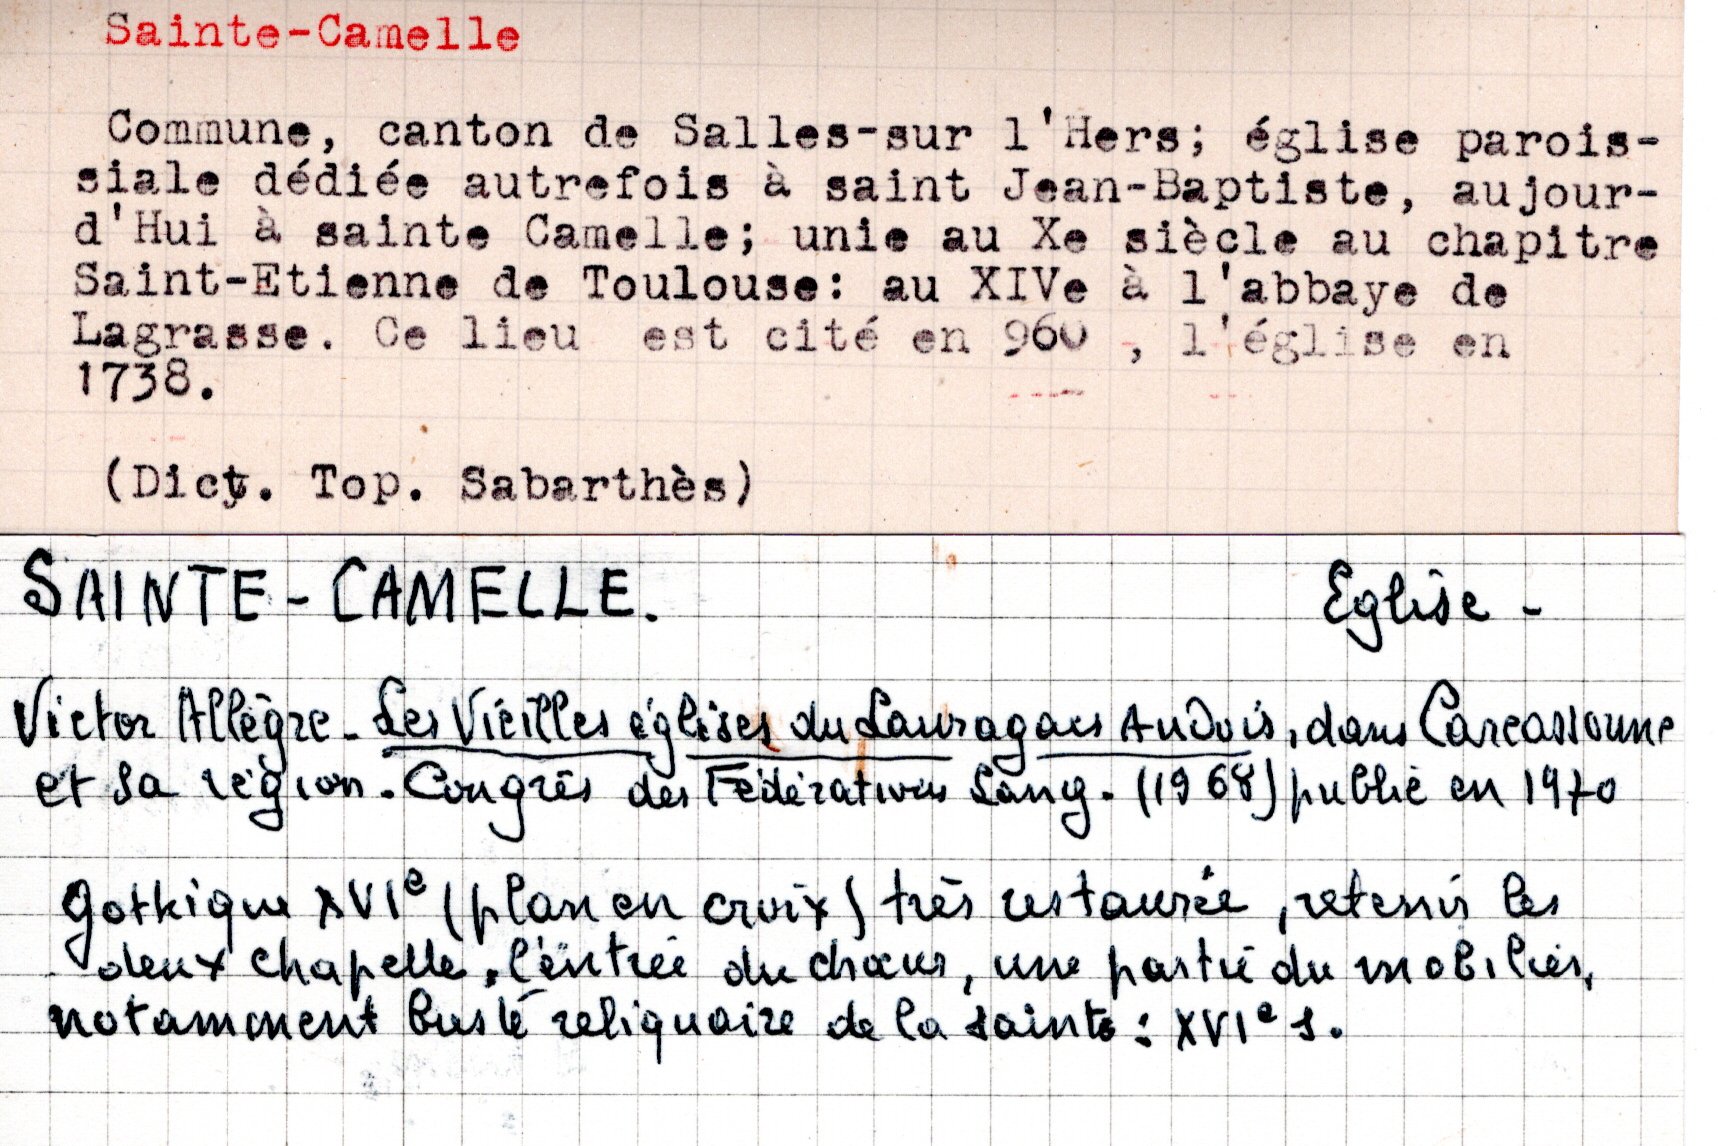 Sainte-Camelle
Commune, canton de Salles-sur l'Hers; église parois-
siale dédiée autrefois à saint Jean-Baptiste, aujour-
d'Hui à sainte Camelle; unie au Xe siècle au chapitre
Saint-Etienne de Toulouse: au XIVe à l'abbaye de
Lagrasse. Ce lieu est cité en 960 , l'église en
1738.
(Dict. Top. Sabarthès)
SAINTE-CAMELLE. Eglise -
Victor Allègre - Les Vieilles églises du Lauragais Audois, dans Carcassonne
et sa région. Congrès des Fédérations Lang. (1968) publié en 1970
Gothique XVIe (plan en croix) très restaurée, retenir les
deux chapelle, l'entrée du chœur, une partie du mobilier,
notamment buste reliquaire de la sainte : XVIe s.